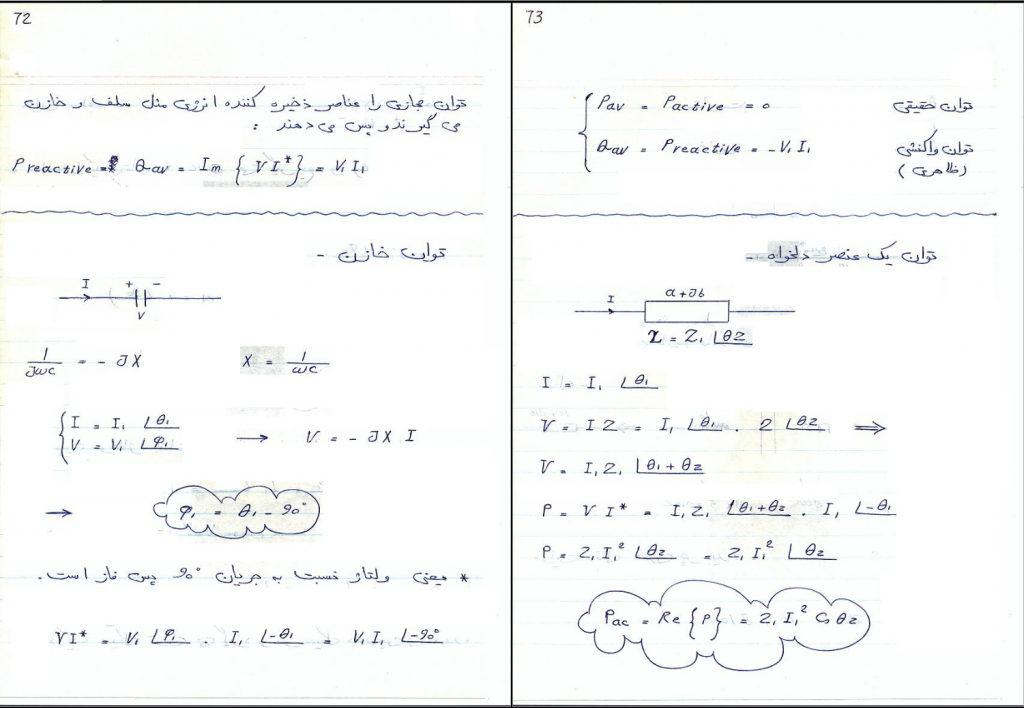 72
توان مجازی را عناصر ذخیره کننده انرژی مثل سلف و خازن
می گیرند و پس می دهند :
Preactive = Qav = Im { VI* } = V₁ I₁
توان خازن -
I + -
V
1/JωC = - JX X = 1/ωC
I = I₁ ∠θ₁
V = V₁ ∠φ₁ → V = - JX I
→ φ₁ = θ₁ - 90°
* یعنی ولتاژ نسبت به جریان 90° پس فاز است.
VI* = V₁ ∠φ₁ . I₁ ∠-θ₁ = V₁ I₁ ∠-90°
73
Pav = Pactive = 0 توان حقیقی
Qav = Preactive = - V₁ I₁ توان واکنشی
(ظاهری)
توان یک عنصر دلخواه -
I a+Jb
Z = Z₁ ∠θz
I = I₁ ∠θ₁
V = I Z = I₁ ∠θ₁ . Z ∠θz ⇒
V = I₁ Z₁ ∠θ₁ + θz
P = V I* = I₁ Z₁ ∠θ₁+θz . I₁ ∠-θ₁
P = Z₁ I₁² ∠θz = Z₁ I₁² ∠θz
Pac = Re {P} = Z₁ I₁² Cos θz